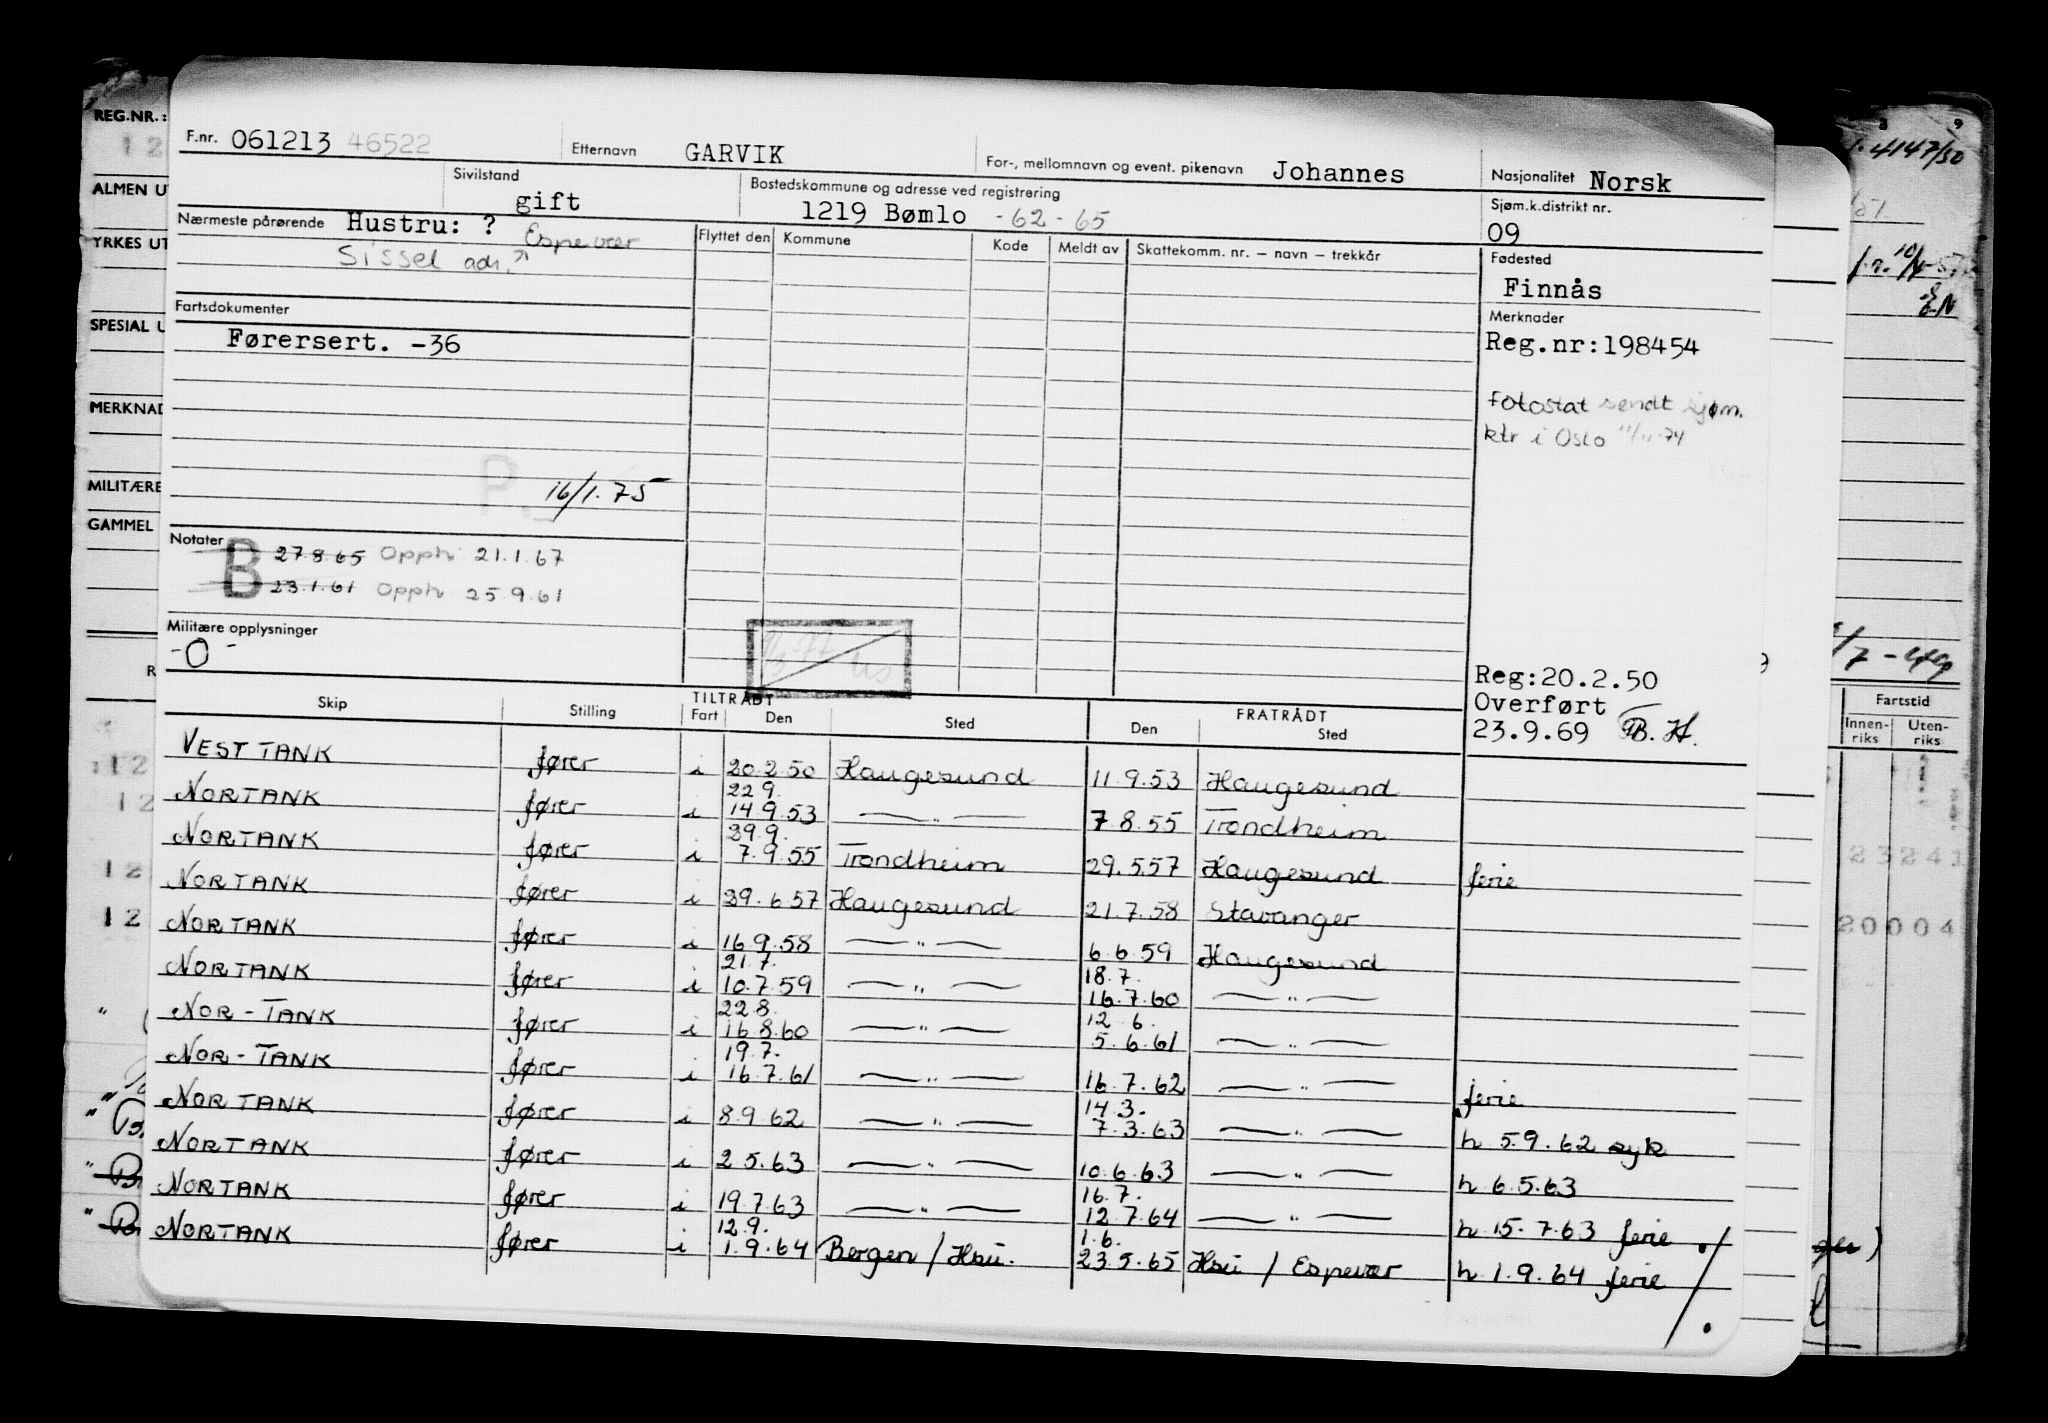 REG.NR.:
F.nr. 061213 46522 Etternavn GARVIK For-, mellomnavn og event. pikenavn Johannes Nasjonalitet Norsk
Sivilstand gift Bostedskommune og adresse ved registrering 1219 Bømlo -62-65 Sjøm.k.distrikt nr. 09
Nærmeste pårørende Hustru: ? Espevær
Sissel adr.
Flyttet den Kommune Kode Meldt av Skattekomm. nr. – navn – trekkår
Fødested
Finnås
Fartsdokumenter
Førersert. -36
Merknader
Reg.nr:198454
fotostat sendt sjøm.
ktr i Oslo 11/11-74
P. 16/1.75
Notater
B 27.8.65 Opph 21.1.67
23.1.61 Opph 25.9.61
Militære opplysninger
-0-
Reg:20.2.50
Overført
23.9.69 B.H.
TILTRÅDT FRATRÅDT
Skip Stilling Fart Den Sted Den Sted
VESTTANK fører i 20.2.50 Haugesund 11.9.53 Haugesund
22.9.
NORTANK fører i 14.9.53 —"— 7.8.55 Trondheim
29.9.
NORTANK fører i 7.9.55 Trondheim 29.5.57 Haugesund ferie
NORTANK fører i 29.6.57 Haugesund 21.7.58 Stavanger
NORTANK fører i 16.9.58 —"— 6.6.59 Haugesund
21.7. 18.7.
NORTANK fører i 10.7.59 —"— 16.7.60 —"—
22.8. 12.6.
NOR-TANK fører i 16.8.60 —"— 5.6.61 —"—
19.7.
NOR-TANK fører i 16.7.61 —"— 16.7.62 —"— ferie
14.3.
NORTANK fører i 8.9.62 —"— 7.3.63 —"— h 5.9.62 syk
NORTANK fører i 2.5.63 —"— 10.6.63 —"— h 6.5.63
16.7.
NORTANK fører i 19.7.63 —"— 12.7.64 —"— h 15.7.63 ferie
12.9. 1.6.
NORTANK fører i 1.9.64 Bergen / Hsu. 23.5.65 Hsu / Espevær h 1.9.64 ferie
ALMEN U
YRKES UT
SPESIAL U
MERKNAD
MILITÆRE
GAMMEL
8 9
4147/50
Fartstid
Innen-
riks
Uten-
riks
23241
20004